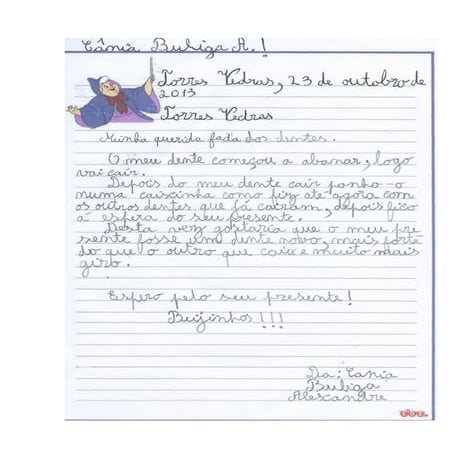 Tânia Buliga A.!
Torres Vedras, 23 de outobro de
2013
Torres Vedras
Minha querida fada dos dentes.
O meu dente começou a abanar, logo
vai cair.
Depois do meu dente cair ponho-o
numa caixinha como fiz até agora com
os outros dentes que já cairam, depois fico
á espera do seu presente.
Desta vez gostaria que o meu pre
sente fosse um dente novo, mais forte
do que o outro que caiu e muito mais
giro.
Espero pelo seu presente!
Beijinhos!!!
Da: Tania
Buliga
Alexandre